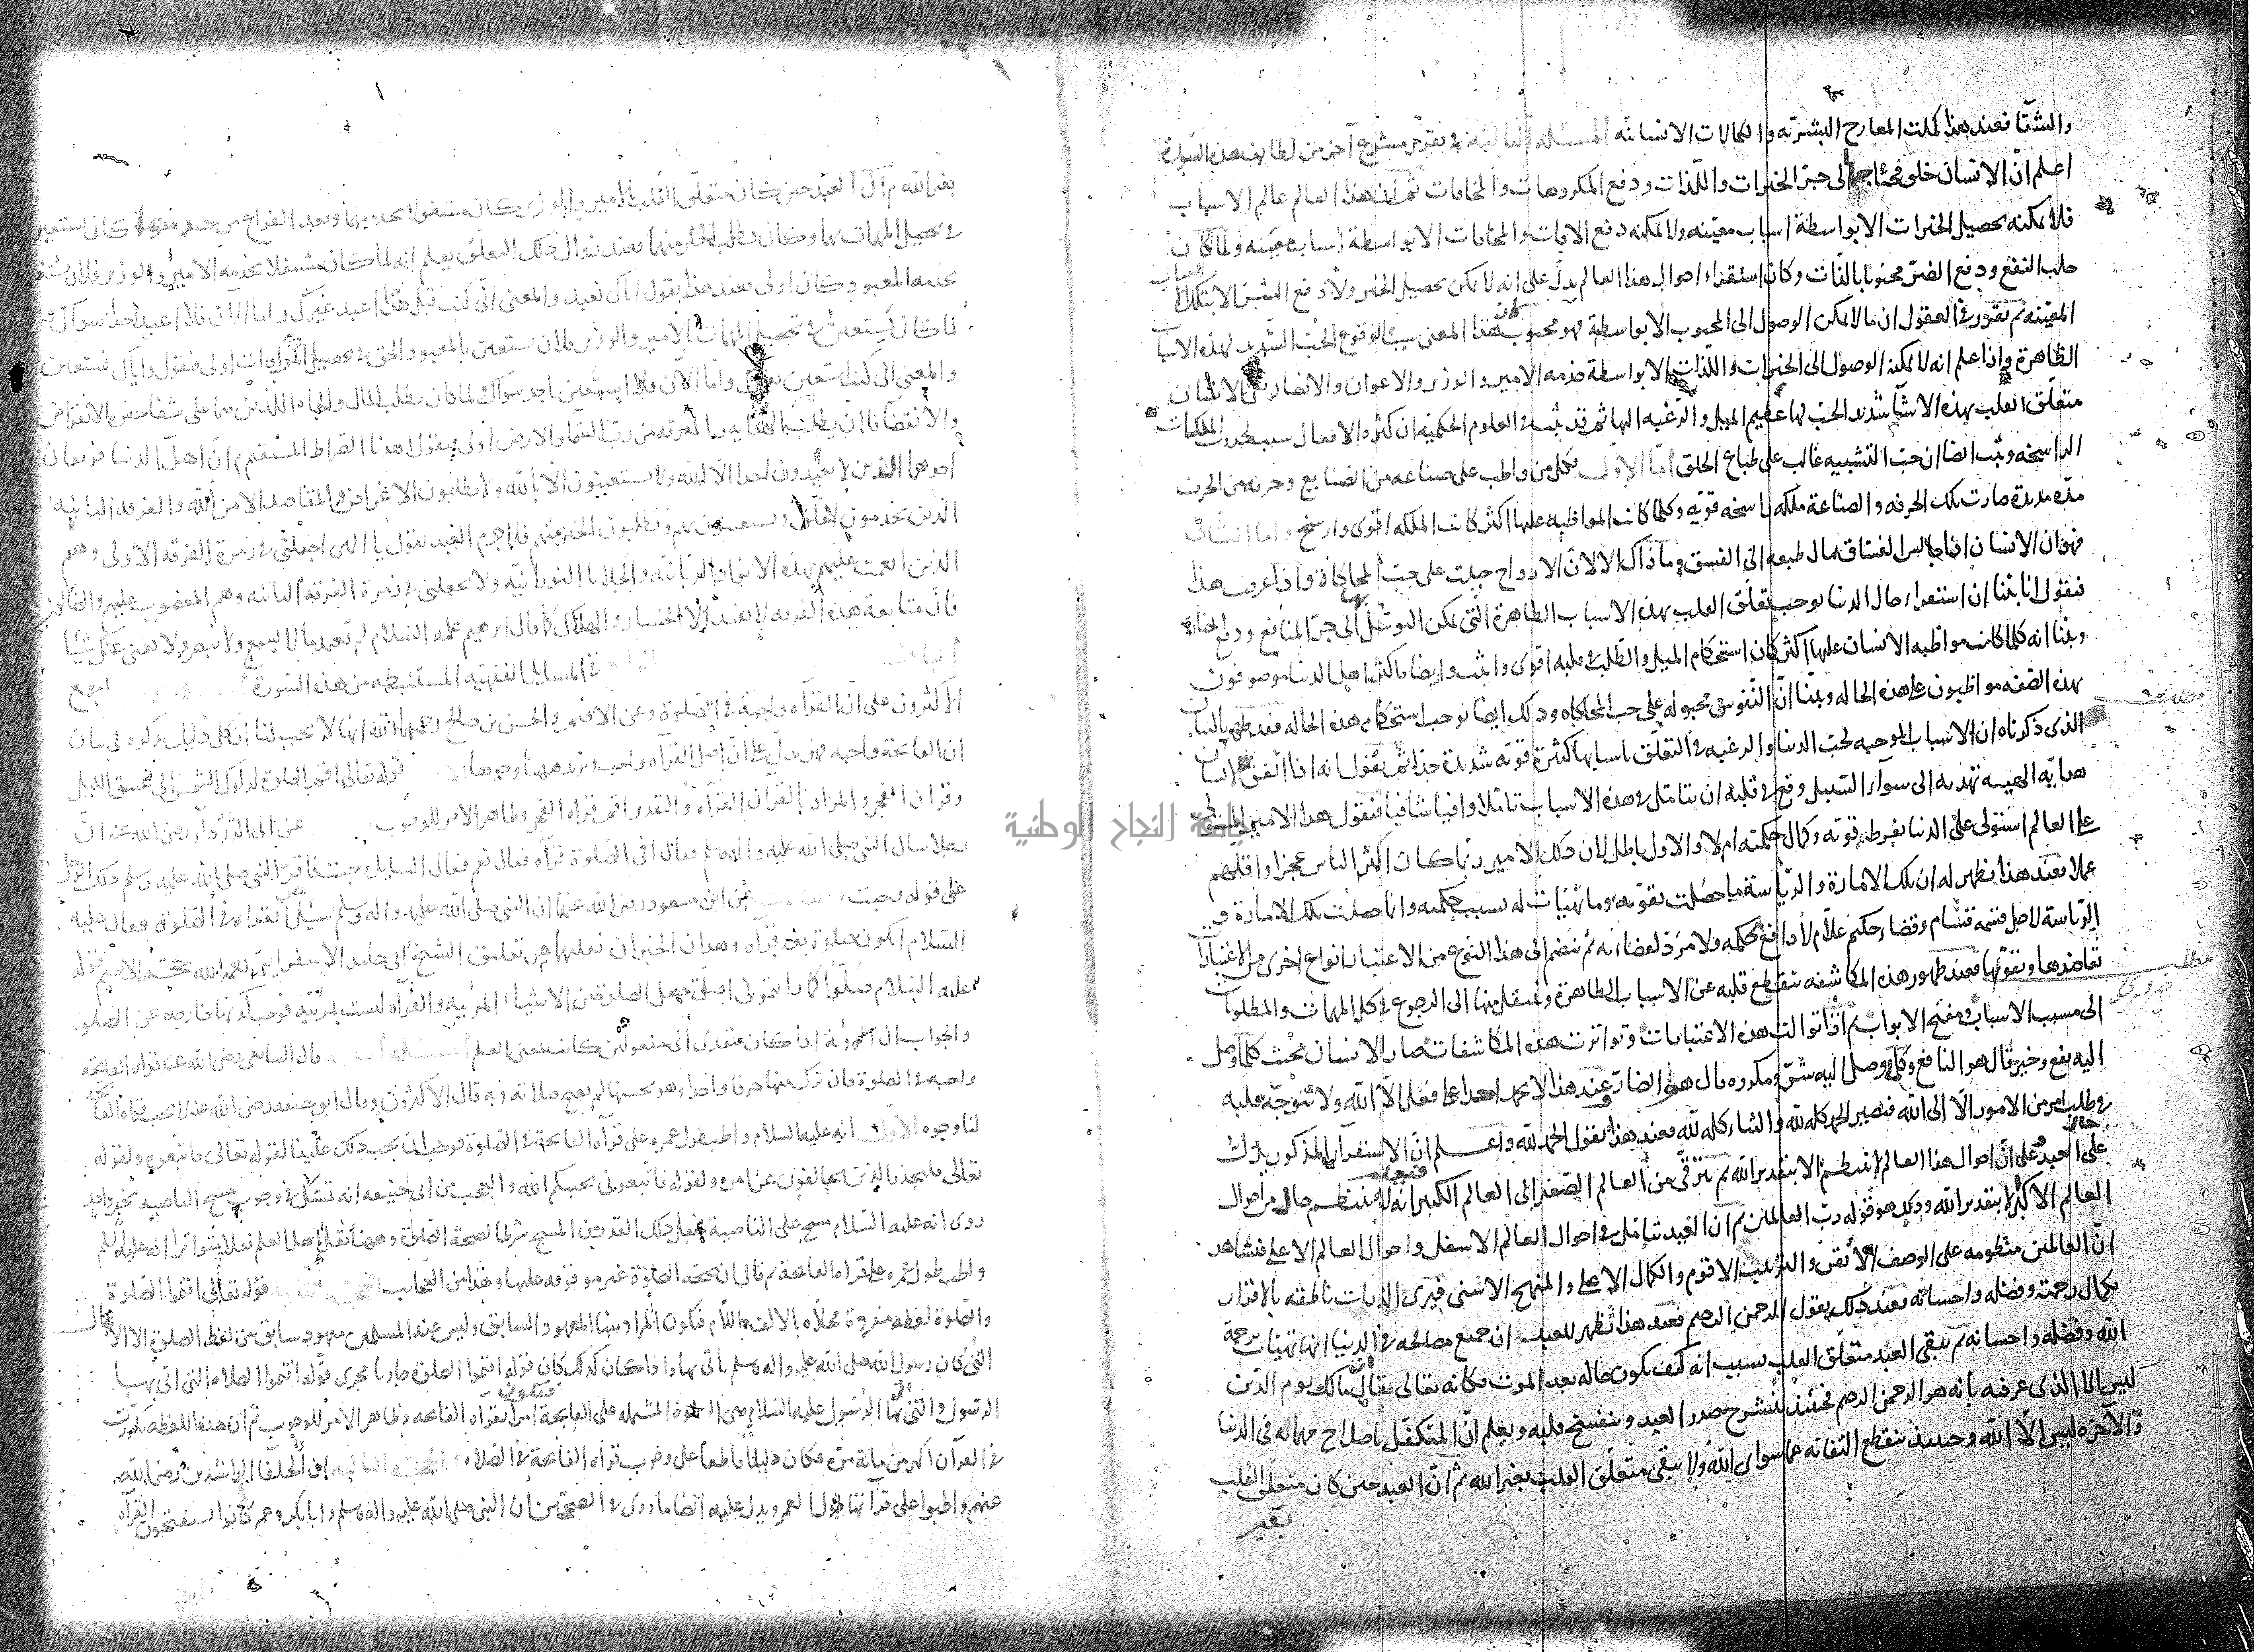 والثناء فعند هذا كملت المعارج البشرية والكمالات الانسانية المسئلة الثانية في تقرير مشرع آخر من لطائف هذه السورة
اعلم انّ الانسان خلق محتاجا الى جرّ الخيرات واللّذات ودفع المكروهات والمخافات ثم ان هذا العالم عالم الاسباب
فلا يمكنه تحصيل الخيرات الا بواسطة اسباب معيّنه ولا يمكنه دفع الافات والمخافات الا بواسطة اسباب معينه ولما كان
جلب النفع ودفع الضرّ محبوبا بالذات وكان استقراء احوال هذا العالم يدلّ على انه لا يمكن تحصيل الخير ولا دفع الشر الا بتلك الاسباب
المعيّنه ثم تقرّر في العقول ان ما لا يمكن الوصول الى المحبوب الا بواسطة فهو محبوب كان هذا المعنى سببا لوقوع الحبّ الشديد لهذه الاسباب
الظاهرة واذا علم انه لا يمكنه الوصول الى الخيرات واللّذات الا بواسطة خدمه الامير والوزير والاعوان والانصار بقى الانسان
متعلّق القلب بهذه الاشيا شديد الحبّ لها عظيم الميل والرّغبه اليها ثم قد ثبت في العلوم الحكمية ان كثره الافعال سبب لحدوث الملكات
الراسخه وثبت ايضا ان حبّ التشبيه غالب على طباع الخلق امّا الاوّل فكل من واظب على صناعه من الصّنايع وحرفه من الحرف
مدّه مديدة صارت تلك الحرفه والصناعة ملكه راسخه قويّه وكلما كانت المواظبه عليها اكثر كانت الملكه اقوى وارسخ واما الثّانى
فهو ان الانسان اذا جالس الفسّاق مال طبعه الى الفسق وما ذاك الا لانّ الارواح جبلت على حبّ المحاكاة واذا عرفت هذا
فنقول انا بيّنا ان استقراء حال الدنيا يوجب تعلّق القلب بهذه الاسباب الظاهرة التى يمكن التوسّل بها الى جرّ المنافع ودفع المضارّ
وبيّنا انه كلما كانت مواظبه الانسان عليها اكثر كان استحكام الميل والطلب في قلبه اقوى واثبت وايضا فاكثر اهل الدنيا موصوفون
بهذه الصّفه مواظبون على هذه الحاله وبيّنا انّ النّفوس مجبوله على حبّ المحاكاه وذلك ايضا يوجب استحكام هذه الحاله فقد ظهر بالبيان
الذى ذكرناه ان الاسباب الموجبه لحبّ الدنيا والرغبه في التعلّق باسبابها كثيرة قويّه شديدة جدّا ثم نقول انه اذا اتّفق للانسان
هدايّه الهيه تهديه الى سواء السّبيل وقع في قلبه ان يتامّل في هذه الاسباب تامّلا وافيا شافيا فيقول هذا الامير المستولى
على العالم استولى على الدنيا بفرط قوّته وكمال حكمته ام لا والاول باطل لان ذلك الامير ربّما كان اكثر الناس عجزا واقلهم
عقلا فعند هذا يظهر له ان تلك الامارة والريّاسة ما حصلت بقوّته وما تهيّات له بسبب حكمته وانما حصلت تلك الامارة و
الريّاسة لاجل قسمة قسّام وقضاء حكيم علّام لا دافع لحكمه ولا مردّ لقضائه ثم ينضم الى هذا النوع من الاعتبار انواع اخرى من الاعتبارات
تعاضدها وتقوّيها فعند ظهور هذه المكاشفه ينقطع قلبه عن الاسباب الظاهرة وينتقل منها الى الرجوع في كل المهمات والمطلوبات
الى مسبب الاسباب ومفتح الابواب ثم اذا توالت هذه الاعتبارات وتواترت هذه المكاشفات صار الانسان بحيث كلما وصل
اليه نفع وخير قال هو النافع وكلما وصل اليه شرّ ومكروه قال هو الضارّ وعند هذا لا يحمد احدا على فعل الّا الله ولا يتوجّه قلبه
في طلب امر من الامور الّا الى الله فيصير الحمد كلّه لله والثناء كله لله فعند هذا يقول الحمد لله واعلم انّ الاستقرار المذكور يدلّ
على العبد على انّ احوال هذا العالم لا ينتظم الا بتقدير الله ثم يترقى من العالم الصّغير الى العالم الكبير فيعلم انه لا ينتظم حال من احوال
العالم الاكبر الا بتقدير الله وذلك هو قوله ربّ العالمين ثم ان العبد يتامّل في احوال العالم الاسفل واحوال العالم الاعلى فيشاهد
انّ العالمين منظومه على الوصف الاتقن والترتيب الاقوم والكمال الاعلى والمنهج الاسنى فيرى الذرات ناطقه بالاقرار
بكمال رحمته وفضله واحسانه فعند ذلك يقول الرحمن الرحيم فعند هذا يظهر للعبد ان جميع مصالحه في الدنيا انما تهيّات برحمة
الله وفضله واحسانه ثم يبقى العبد متعلّق القلب بسبب انه كيف يكون حاله بعد الموت فكانه تعالى يقال مالك يوم الدّين
ليس الا الذى عرفته بانه هو الرحمن الرحيم فحينئذ ينشرح صدر العبد وينفسح قلبه ويعلم انّ المتكفّل باصلاح مهماته فى الدنيا
والآخره ليس الّا الله وحينئذ ينقطع التفاته عما سوى الله ولا يبقى متعلّق القلب بغير الله ثم انّ العبد حين كان متعلّق القلب
بغير
بغير الله ثم انّ العبد حين كان متعلّق القلب بالامير والوزير كان مشغولا بخدمتهما وبعد الفراغ من كان يستعين
في تحصيل المهمات بهما وكان يطلب الخير منهما فعند زوال ذلك التعلّق يعلم انه لما كان مشتغلا بخدمه الامير والوزير فلان يشتغل
بخدمه المعبود كان اولى فعند هذا يقول اياك نعبد والمعنى انّى كنت قبل هذا اعبد غيرك واما الآن فلا اعبد احدا سواك و
لما كان يستعين في تحصيل المهمات بالامير والوزير فلان يستعين بالمعبود الحق في تحصيل المرادات اولى فيقول واياك نستعين
والمعنى انى كنت استعين بغيرك واما الآن فلا استعين باحد سواك ولما كان يطلب المال والجاه اللّذين هما على شفا حفرة الانقراض
والانقضاء فان يطلب الهدايه والمعرفه من ربّ السّماء والارض اولى فيقول اهدنا الصّراط المستقيم ثم انّ اهل الدنيا فريقان
احدهما الذين لا يعبدون احدا الّا الله ولا يستعينون الّا بالله ولا يطلبون الاغراض والمقاصد الا من الله والفرقه الثانيه
الذين يخدمون الخلق ويستعينون بهم ويطلبون الخير منهم فلا جرم العبد يقول يا الهى اجعلنى في زمرة الفرقه الاولى وهم
الذين انعمت عليهم بهذه الانوار الربّانيّه والجلايا النورانيّه ولا تجعلنى في زمرة الفرقه الثانيه وهم المغضوب عليهم والضّالون
فانّ متابعة هذه الفرقه لا يفيد الّا الخسار والهلاك كما قال ابرهيم عليه السّلام لم تعبد ما لا يسمع ولا يبصر ولا يغنى عنك شيئا
الباب الرابع في المسايل الفقهيّه المستنبطه من هذه السّورة اجمع
الاكثرون على انّ القرآة واجبة في الصّلوة وعن الاصم والحسن بن صالح رحمهما الله انها لا يجب لنا ان كل دليل نذكره في بيان
ان الفاتحة واجبه فهو يدلّ على انّ اصل القرآة واجب ونزيد ههنا وجوها قوله تعالى اقم الصلوة لدلوك الشمس الى غسق الليل
وقران الفجر والمراد بالقرآن القرآة والتقدير اقم قراة الفجر وظاهر الامر للوجوب عن ابى الدّرداء رضى الله عنه انّ
رجلا سال النبى صلى الله عليه وآله وسلم فقال افى الصّلوة قرآه فقال نعم فقال السايل وجبت فاقرّ النبى صلى الله عليه وسلم ذلك الرجل
على قوله وجبت عن ابن مسعود رضى الله عنهما ان النبى صلى الله عليه واله وسلم سئل ايقرا في الصّلوة فقال عليه
السّلام اتكون صلوة بغير قرآه وهذان الخبران نقلتهما من تعليق الشيخ ابى حامد الاسفراينى رحمه الله حجّة الاصم قوله
عليه السّلام صلّوا كما رايتمونى اصلّى جعل الصلوة من الاشياء المرئيه والقرآه ليست بمرئيّه فوجب كونها خارجه عن الصّلوة
والجواب ان الرؤية اذا كان متعدى الى مفعولين كانت بمعنى العلم قال الشافعى رضى الله عنه قراة الفاتحة
واجبه في الصلوة فان ترك منها حرفا واحدا وهو يحسنها لم يصح صلاته وبه قال الاكثرون وقال ابو حنيفه رضى الله عنه لا يجب قراة الفاتحه
لنا وجوه الاوّل انه عليه السلام واظب طول عمره على قرآة الفاتحة في الصّلوة فوجب ان يجب ذلك علينا لقوله تعالى فاتّبعوه ولقوله
تعالى فليحذر الذين يخالفون عن امره ولقوله فاتبعونى يحببكم الله والعجب من ابى حنيفه انه تمسّك في وجوب مسح الناصيه بخبر واحد
روى انه عليه السّلام مسح على الناصية فجعل ذلك القدر من المسح شرطا لصحة الصّلوة وههنا نقل اهل العلم نقلا متواترا انه عليه السلم
واظب طول عمره على قراة الفاتحة ثم قال ان صحّة الصّلوة غير موقوفه عليها وهذا من العجايب قوله تعالى اقيموا الصّلوة
والصّلوة لفظه مفردة محلّاه بالالف واللّام فيكون المراد منها المعهود السابق وليس عند المسلمين معهود سابق من لفظ الصلوة الا الاعمال
التى كان رسول الله صلى الله عليه واله وسلم ياتى بها واذا كان كذلك كان قوله اقيموا الصلوة جاريا مجرى قوله اقيموا الصلاه التى اتى بها
الرسول والتى اتى بها الرّسول عليه السّلام هى الصلوة المشتمله على الفاتحة فيكون امرا بقراة الفاتحه وظاهر الامر للوجوب ثم انّ هذه اللفظه تكرّرت
في القرآن اكثر من ماية مرّة فكان دليلا قاطعا على وجوب قراة الفاتحة في الصّلاه انّ الخلفا الراشدين رضى الله
عنهم واظبوا على قرآتها طول العمر ويدل عليه ايضا ما روى في الصّحيحين ان النبى صلى الله عليه واله وسلم وابا بكر وعمر كانوا يستفتحون القرآة
جامعة النجاح الوطنية